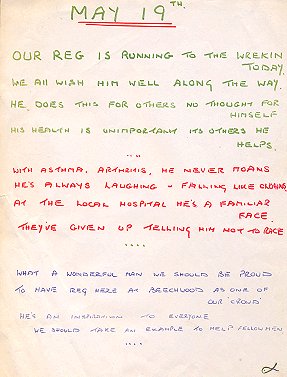 MAY 19TH.
OUR REG IS RUNNING TO THE WREKIN
TODAY.
WE All WISH HIM WELL ALONG THE WAY.
HE DOES THIS FOR OTHERS NO THOUGHT FOR
HIMSELF
HIS HEALTH IS UNIMPORTANT ITS OTHERS HE
HELPS.
....
WITH ASTHMA, ARTHRITIS, HE NEVER MOANS
HE'S ALWAYS LAUGHING - FALLING LIKE CLOWNS
AT THE LOCAL HOSPITAL HE'S A FAMILIAR
FACE.
THEY'VE GIVEN UP TELLING HIM NOT TO RACE
....
WHAT A WONDERFUL MAN WE SHOULD BE PROUD
TO HAVE REG HERE AT BEECHWOOD AS ONE OF
OUR 'CROWD'
HE'S AN INSPIRATION TO EVERYONE
WE SHOULD TAKE AN EXAMPLE TO HELP FELLOWMEN
....